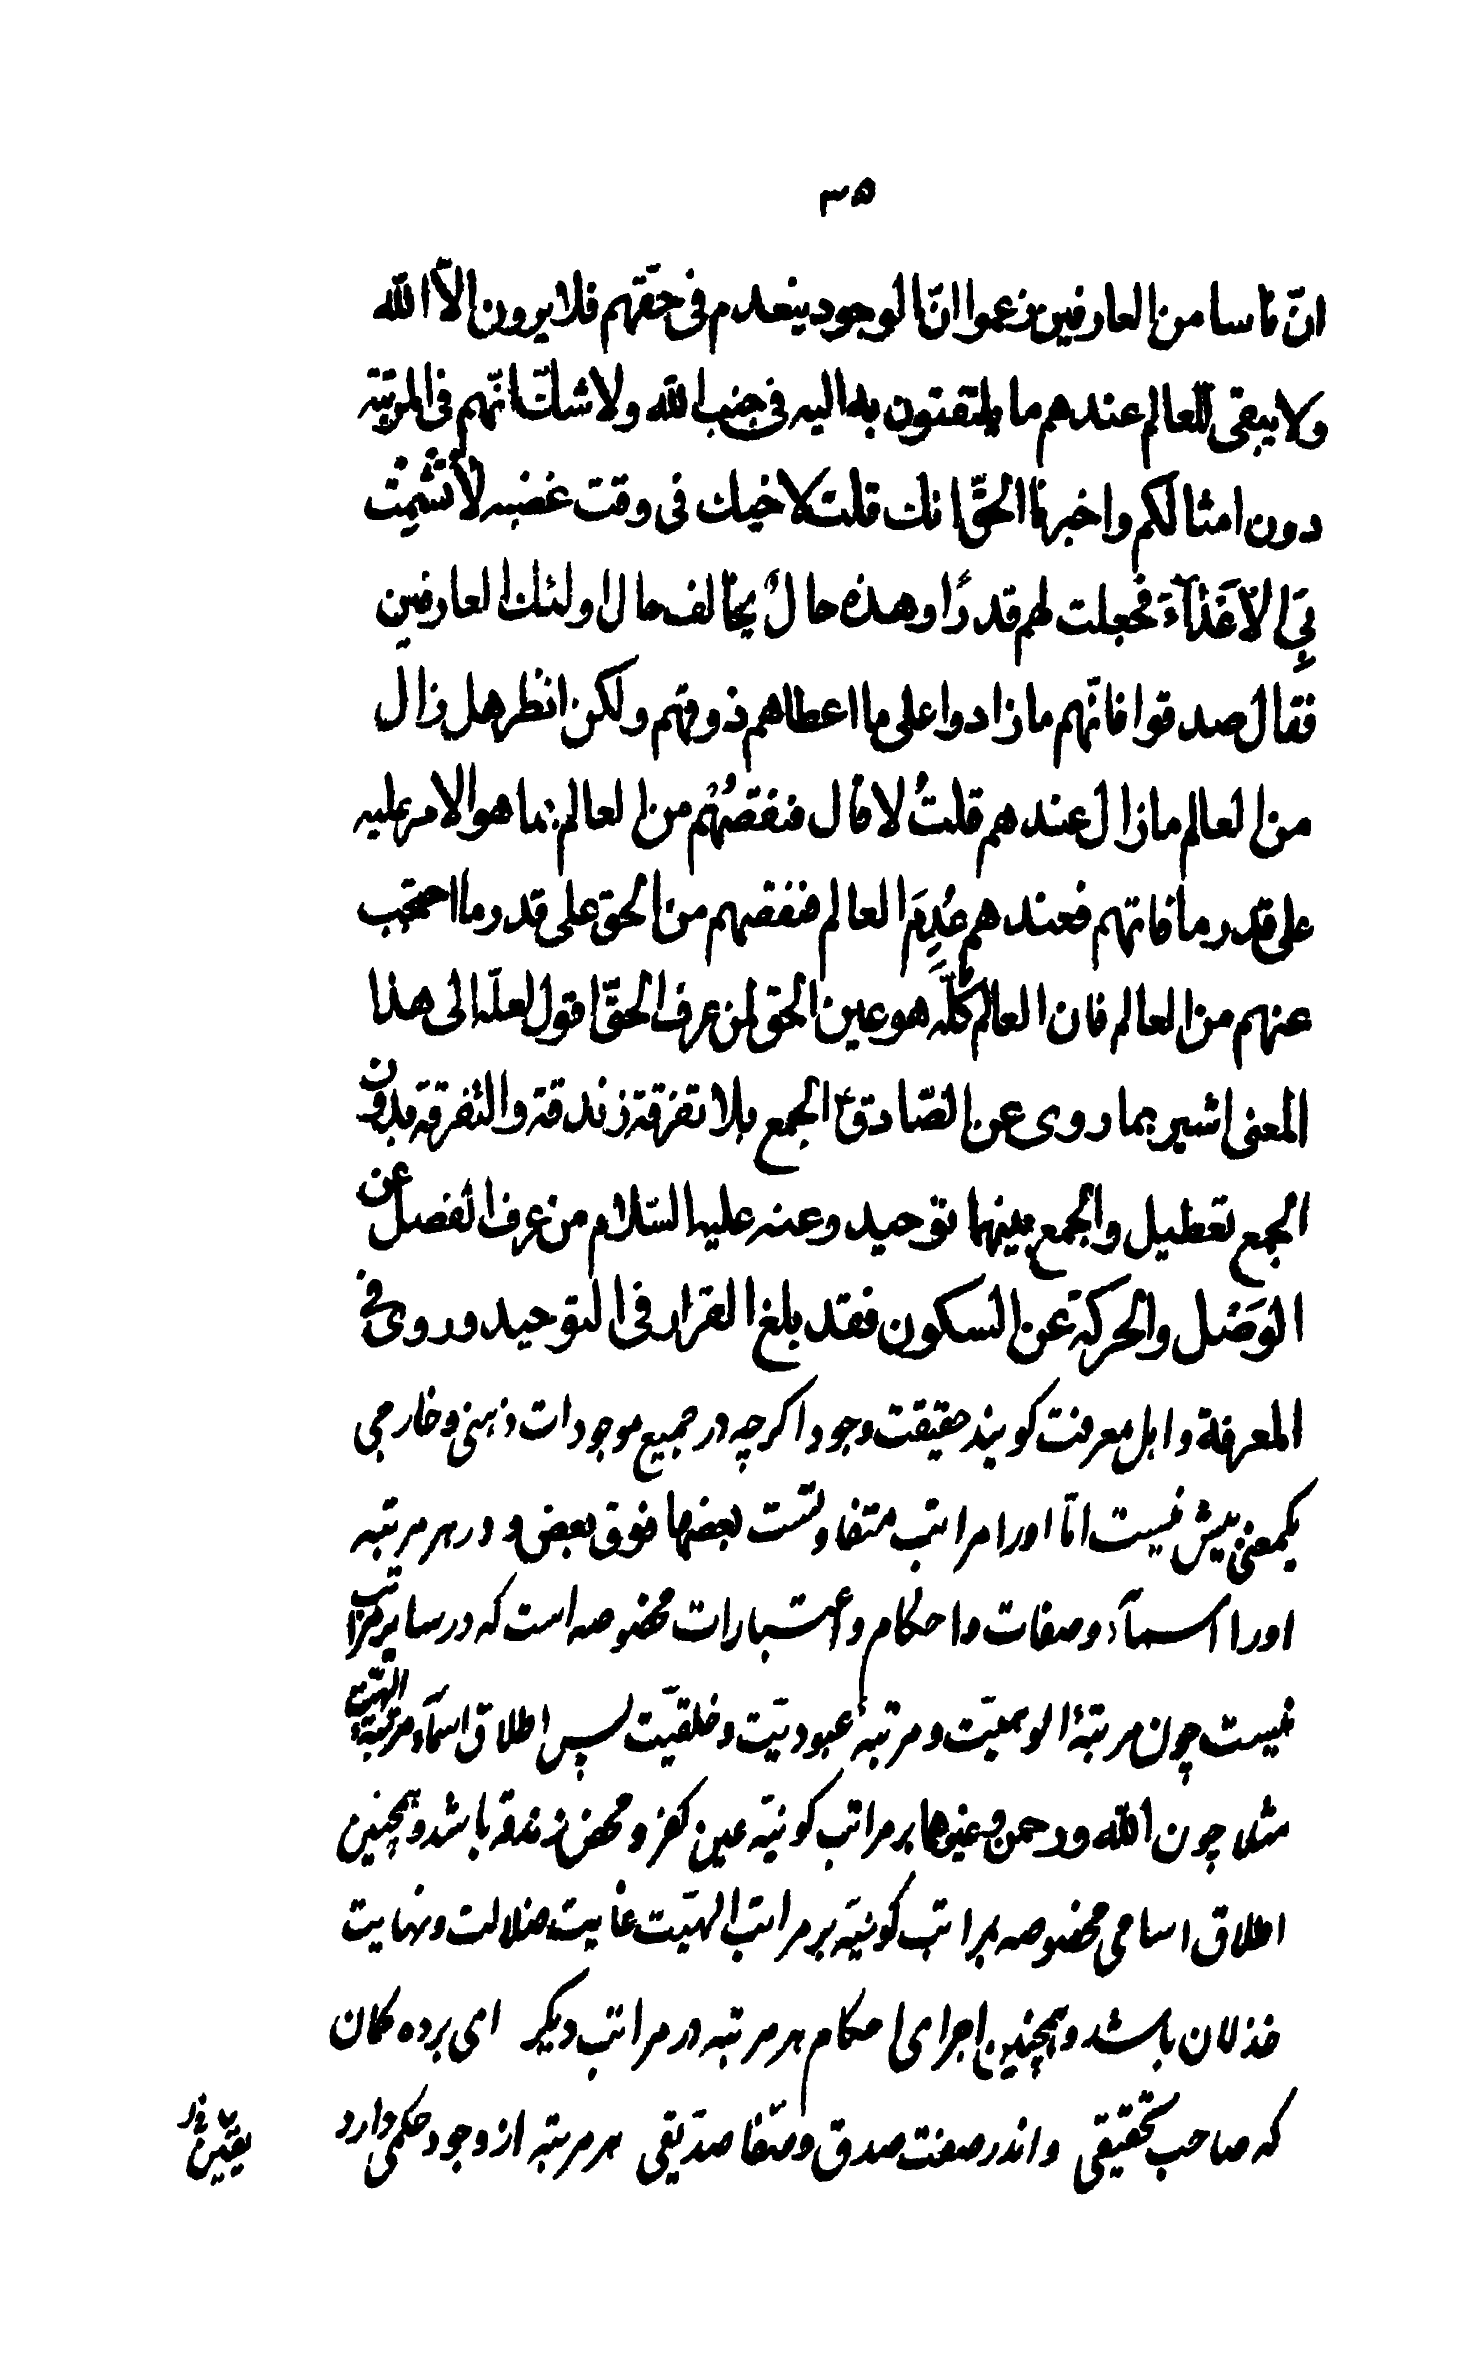 ۳۵
انّ ناسا من العارفين زعموا انّ الوجود ينعدم فى حقّهم فلا يرون الاّ الله
ولا يبقى للعالم عندهم ما يلتفتون به اليه فى جنب الله ولا شكّ انّهم فى المرتبة
دون امثالكم واخبرنا الحقّ انك قلت لاخيك فى وقت غضبه لا تُشْمِتْ
بِىَ الْاَعْدَآءَ فجعلت لهم قدرًا وهذه حالٌ يخالف حال اولئك العارفين
فقال صدقوا فانّهم ما زادوا على ما اعطاهم ذوقهم ولكن انظر هل زال
من العالم ما زال عندهم قلتُ لا قال فنقصُهُم من العالم بما هو الامر عليه
على قدر ما فاتهم فعندهم عُدِمَ العالم فنقصهم من الحق على قدر ما احتجب
عنهم من العالم فان العالم كُلَّه هو عين الحق لمن عرف الحقّ اقول لعلّه الى هذا
المعنى اشير بما روى عن الصّادق ع الجمع بلا تفرقة زندقة والتفرقة بدون
الجمع تعطيل والجمع بينهما توحيد وعنه عليه السّلام من عرف الفصل عن
الوَصْل والحركة عن السكون فقد بلغ القرار فى التوحيد وروى فى
المعرفة و اهل معرفت كويند حقيقت وجود اكرچه در جميع موجودات ذهنى و خارجى
يكمعنى بيش نيست امّا اورا مراتب متفاوتست بعضها فوق بعض و در هر مرتبه
اورا اسمآء و صفات و احكام و اعتبارات مخصوصه است كه در ساير مراتب
نيست چون مرتبۀ الوهيّت و مرتبۀ عبوديّت و خلقيّت پس اطلاق اسمآء مرتبۀ الهيّت
مثلا چون الله و رحمن و غيرها بر مراتب كونيّه عين كفر و محض زندقه باشد و همچنين
اطلاق اسامى مخصوصه بمراتب كونيّه بر مراتب الهيّت غايت ضلالت و نهايت
خذلان باشد و همچنين اجراى احكام هر مرتبه در مراتب ديكر اى برده كمان
كه صاحب تحقيقى واندر صفت صدق و صفا صدّيقى هر مرتبه از وجود حكمى دارد